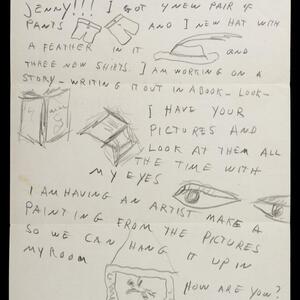 JENNY!!! I GOT 4 NEW PAIR OF
PANTS AND 1 NEW HAT WITH
A FEATHER IN IT AND
THREE NEW SHIRTS. I AM WORKING ON A
STORY - WRITING IT OUT IN A BOOK - LOOK -
I HAVE YOUR
PICTURES AND
LOOK AT THEM ALL
THE TIME WITH
MY EYES
I AM HAVING AN ARTIST MAKE A
PAINTING FROM THE PICTURES
SO WE CAN HANG IT UP IN
MY ROOM
HOW ARE YOU?